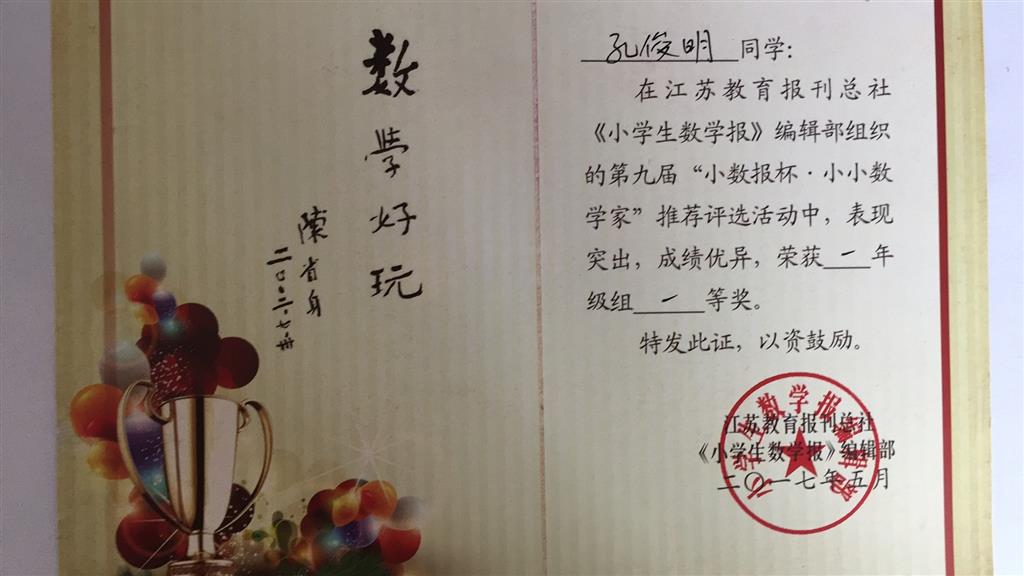 数学好玩
陳省身
孔俊明同学:
在江苏教育报刊总社
《小学生数学报》编辑部组织
的第九届“小数报杯·小小数
学家”推荐评选活动中,表现
突出,成绩优异,荣获一年
级组一等奖。
特发此证,以资鼓励。
江苏教育报刊总社
《小学生数学报》编辑部
二〇一七年五月
小学生数学报编辑部